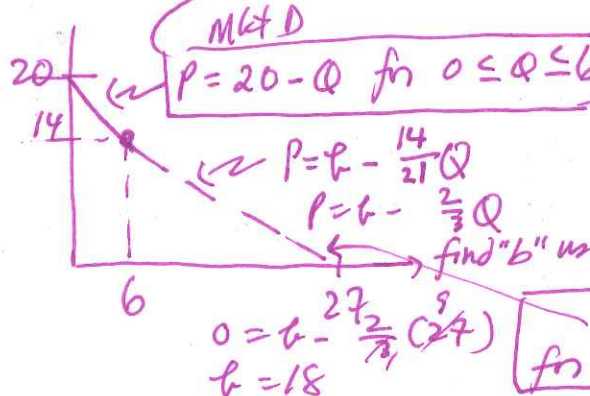 Mkt D
20
P = 20 - Q for 0 ≤ Q ≤ 6
14
P = b - 14/21 Q
P = b - 2/3 Q
find "b"
6
27
0 = b - 2/3 (27) 9
b = 18
for